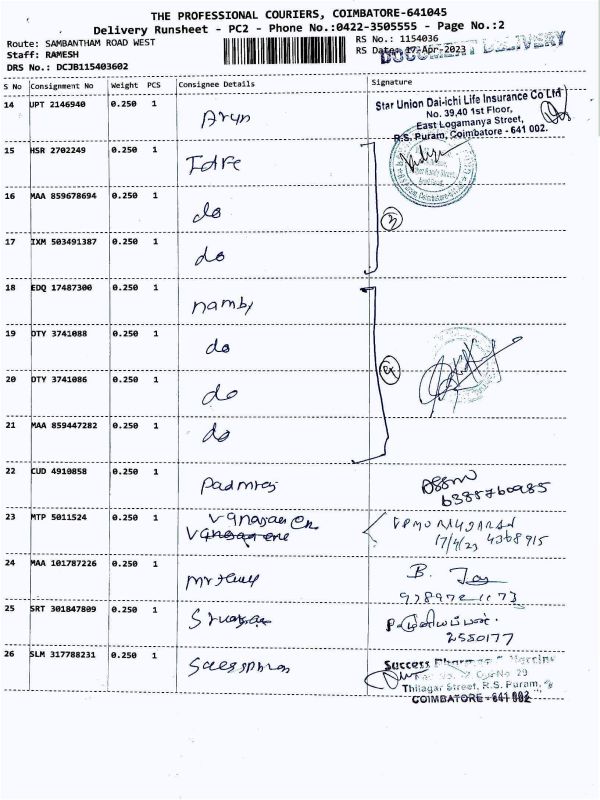 THE PROFESSIONAL COURIERS, COIMBATORE-641045
Delivery Runsheet - PC2 - Phone No.:0422-3505555 - Page No.:2
Route: SAMBANTHAM ROAD WEST
RS No.: 1154036
Staff: RAMESH
RS Date: 17-Apr-2023
DOCUMENT DELIVERY
DRS No.: DCJB115403602
S No Consignment No Weight PCS Consignee Details Signature
14 UPT 2146940 0.250 1 Arun
Star Union Dai-ichi Life Insurance Co Ltd
No. 39,40 1st Floor,
East Logamanya Street,
R.S. Puram, Coimbatore - 641 002.
15 HSR 2702249 0.250 1
16 MAA 859678694 0.250 1 do
3
17 IXM 503491387 0.250 1 do
18 EDQ 17487300 0.250 1 namby
19 OTY 3741088 0.250 1 do
20 OTY 3741086 0.250 1 do
21 MAA 859447282 0.250 1 do
22 CUD 4910858 0.250 1
23 MTP 5011524 0.250 1
17/4/23
24 MAA 101787226 0.250 1
B.
25 SRT 301847809 0.250 1
2550177
26 SLM 317788231 0.250 1
Success
Thilagar Street, R.S. Puram,
COIMBATORE - 641 002